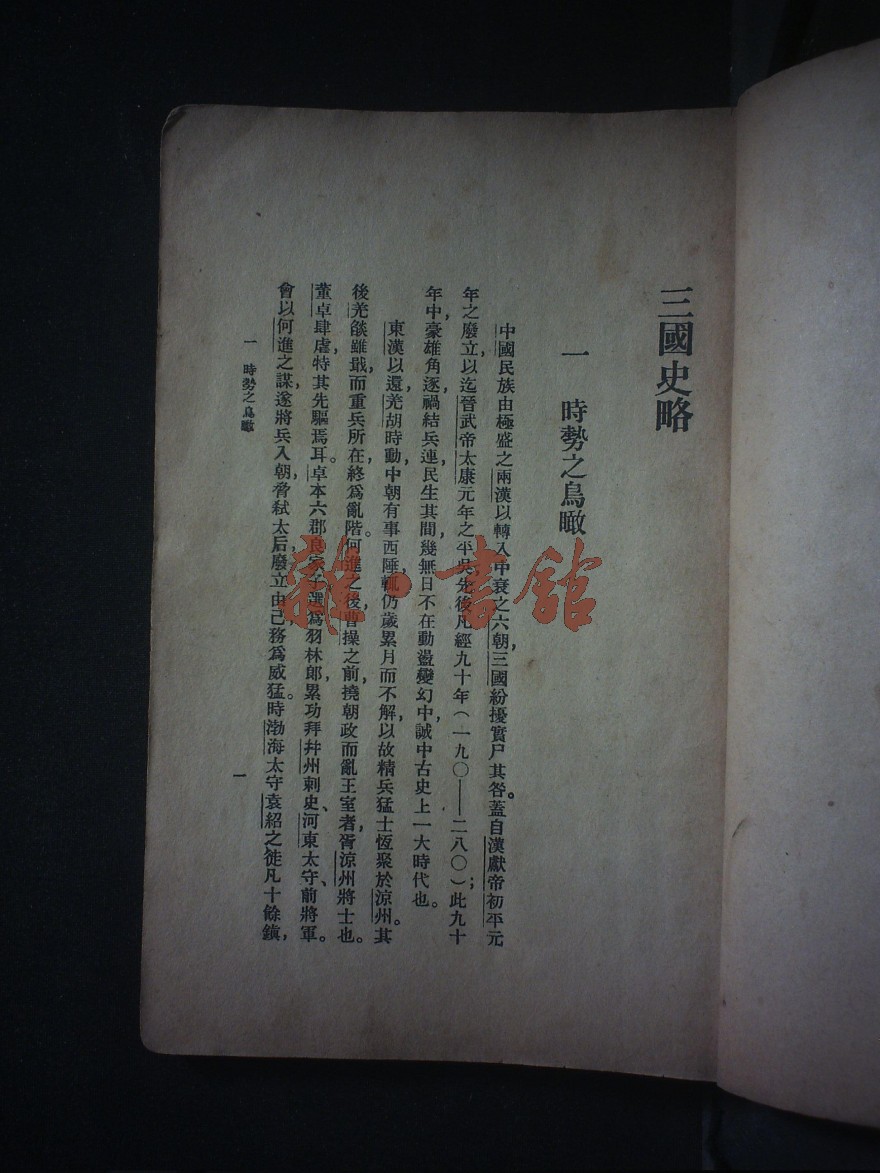 三國史略
一 時勢之鳥瞰
中國民族由極盛之兩漢以轉入中衰之六朝,三國紛擾實尸其咎。蓋自漢獻帝初平元
年之廢立,以迄晉武帝太康元年之平吳,先後凡經九十年(一九〇——二八〇);此九十
年中,豪雄角逐,禍結兵連,民生其間,幾無日不在動盪變幻中,誠中古史上一大時代也。
東漢以還,羌胡時動,中朝有事西陲,輒仍歲累月而不解,以故精兵猛士恆聚於涼州。其
後羌燄雖戢,而重兵所在,終爲亂階。何進之後,曹操之前,撓朝政而亂王室者,胥涼州將士也。
董卓肆虐,特其先驅焉耳。卓本六郡良家子,選爲羽林郎,累功拜幷州刺史、河東太守、前將軍。
會以何進之謀,遂將兵入朝,脅弒太后,廢立由己,務爲威猛。時渤海太守袁紹之徒凡十餘鎮,
一 時勢之鳥瞰
一
雜·書館